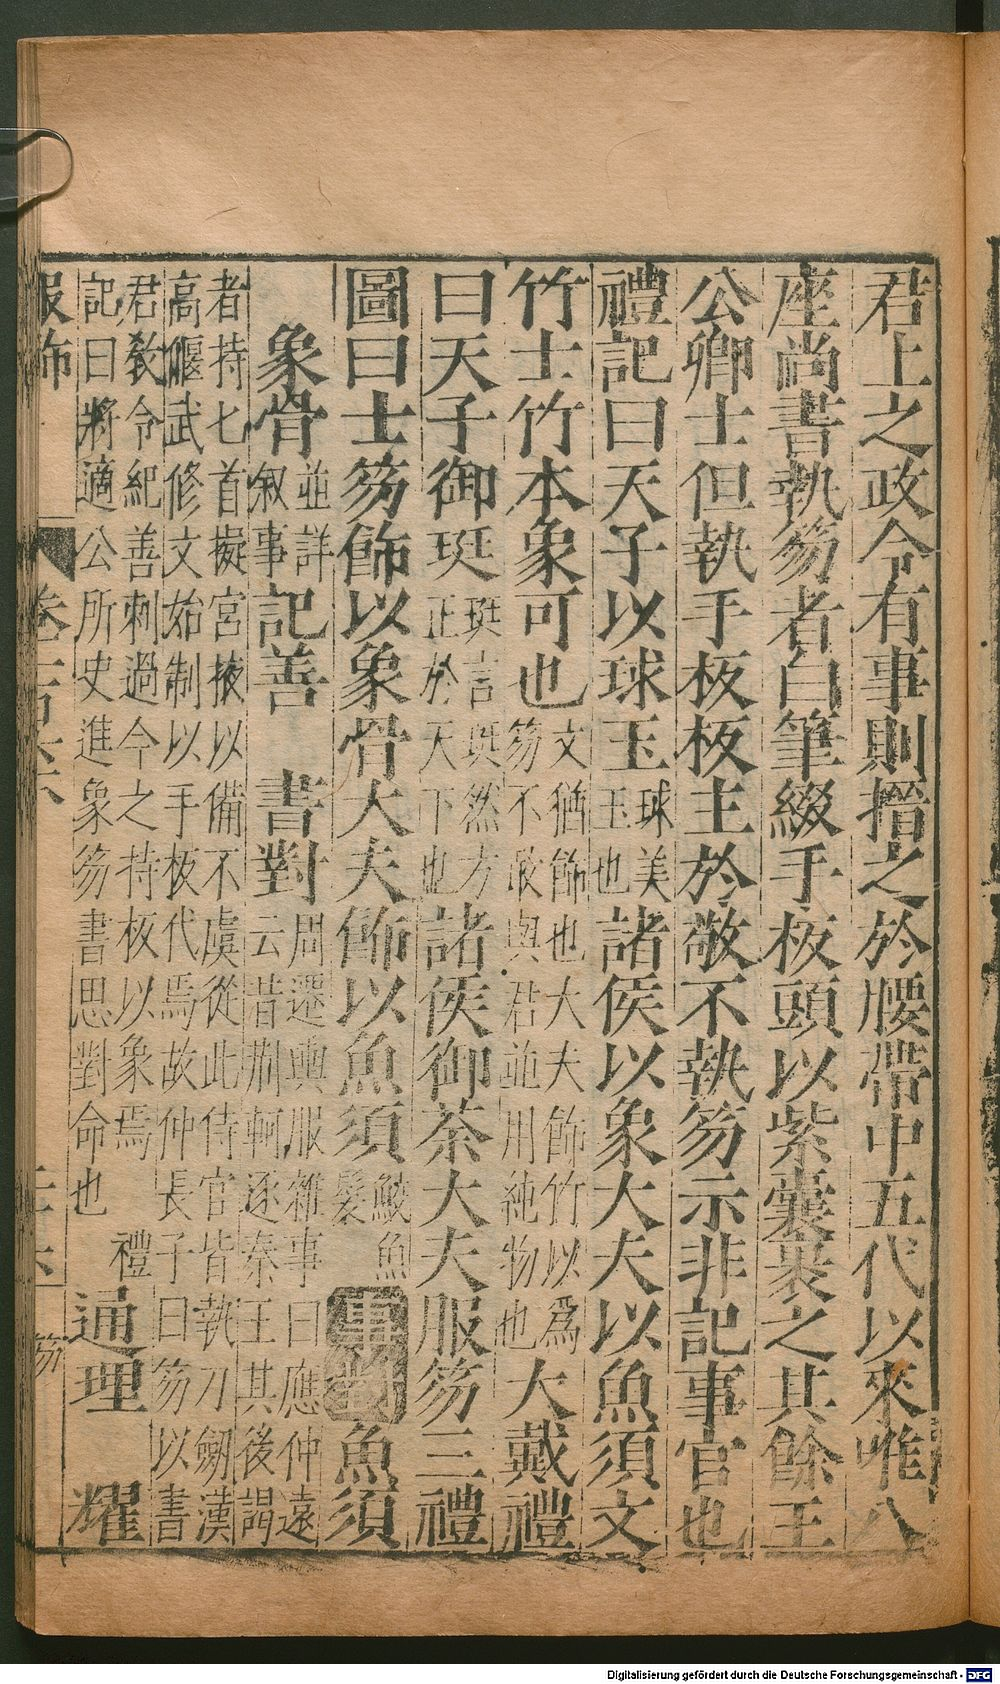 君上之政令有事則搢之於腰帶中五代以來唯八
座尚書執笏者白筆綴手板頭以紫囊裹之其餘王
公卿士但執手板板主於敬不執笏示非記事官也
禮記曰天子以球玉球美玉也諸侯以象大夫以魚須文
竹士竹本象可也文猶飾也大夫飾竹以爲笏不敢與君並用純物也大戴禮
曰天子御珽珽言珽然方正於天下也諸侯御荼大夫服笏三禮
圖曰士笏飾以象骨大夫飾以魚須鮫魚髮事對魚須
象骨並詳叙事記善 書對周遷輿服雜事曰應仲遠云昔荊軻逐秦王其後謁
者持匕首擬宮掖以備不虞從此侍官皆執刀劒漢
高偃武修文始制以手板代焉故仲長子曰笏以書
君敎令紀善刺過今之持板以象焉 禮
記曰將適公所史進象笏書思對命也 通理 耀
服飾 卷一百 笏
Digitalisierung gefördert durch die Deutsche Forschungsgemeinschaft - DFG